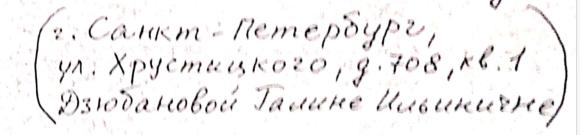 (г. Санкт-Петербург,
ул. Хрустицкого, д. 708, кв. 1
Дзюбановой Галине Ильиничне)